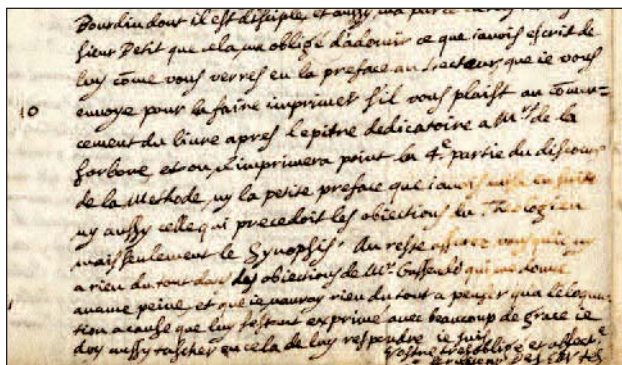 Bourdin dont il est disciple, et aussy
sieur Petit que cela m'a obligé d'adoucir ce que i'avois escrit de
luy come vous verres en la preface au Lecteur que ie vous
10 envoye pour la faire imprimer s'il vous plaist au comen=
cement du livre apres l'epitre dedicatoire a Mrs de la
Sorbone, et on n'imprimera point la 4e partie du discours
de la Methode, ny la petite preface que i'avois mise en suite
ny aussy celle qui precedoit les obiections du Theologien
mais seulement le Synopsis. Au reste assurez vous qu'il n'y
a rien du tout dans les obiections de Mr Gassendi qui me donne
aucune peine, et que ie n'auray rien du tout a penser qu'a l'elocu=
tion a cause que luy s'estant exprimé avec beaucoup de grace ie
doy aussy tascher en cela de luy respondre ie suis
Vostre tres obligé et affect.é
serviteur DESCARTES